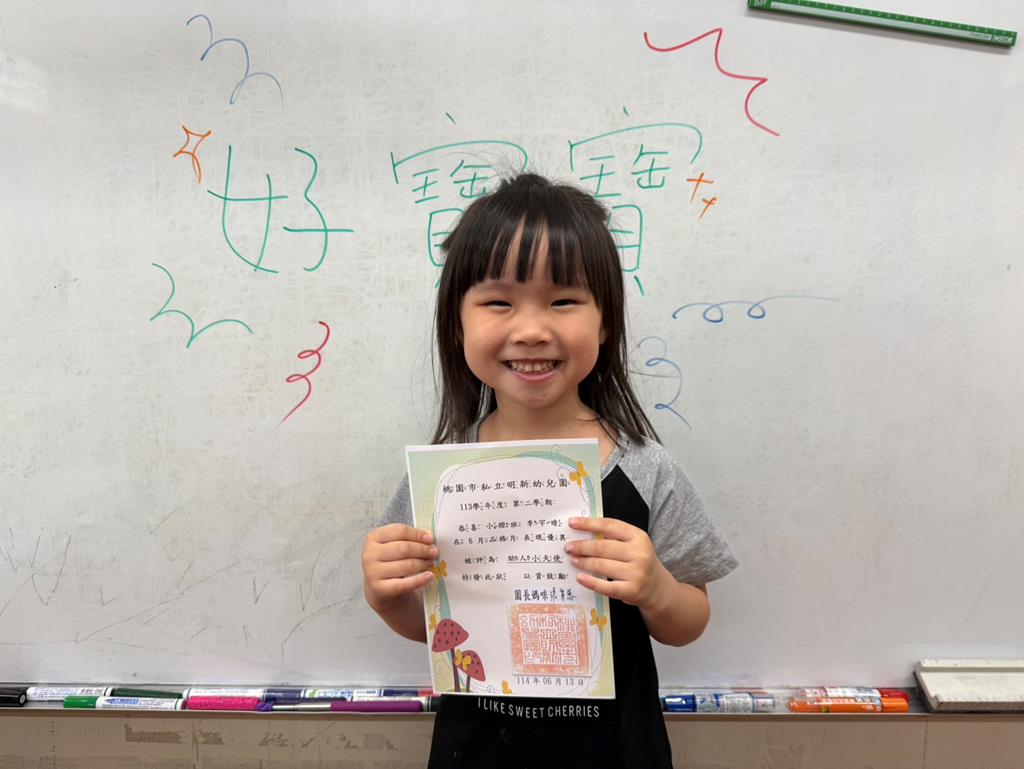 好寶寶
桃園市私立明新幼兒園
113學年度 第二學期
恭喜 小橙班 李宇晴
在 6 月品格月表現優異
被評為 助人小天使
特發此狀 以資鼓勵
園長媽咪
114 年 06 月 13 日
I LIKE SWEET CHERRIES